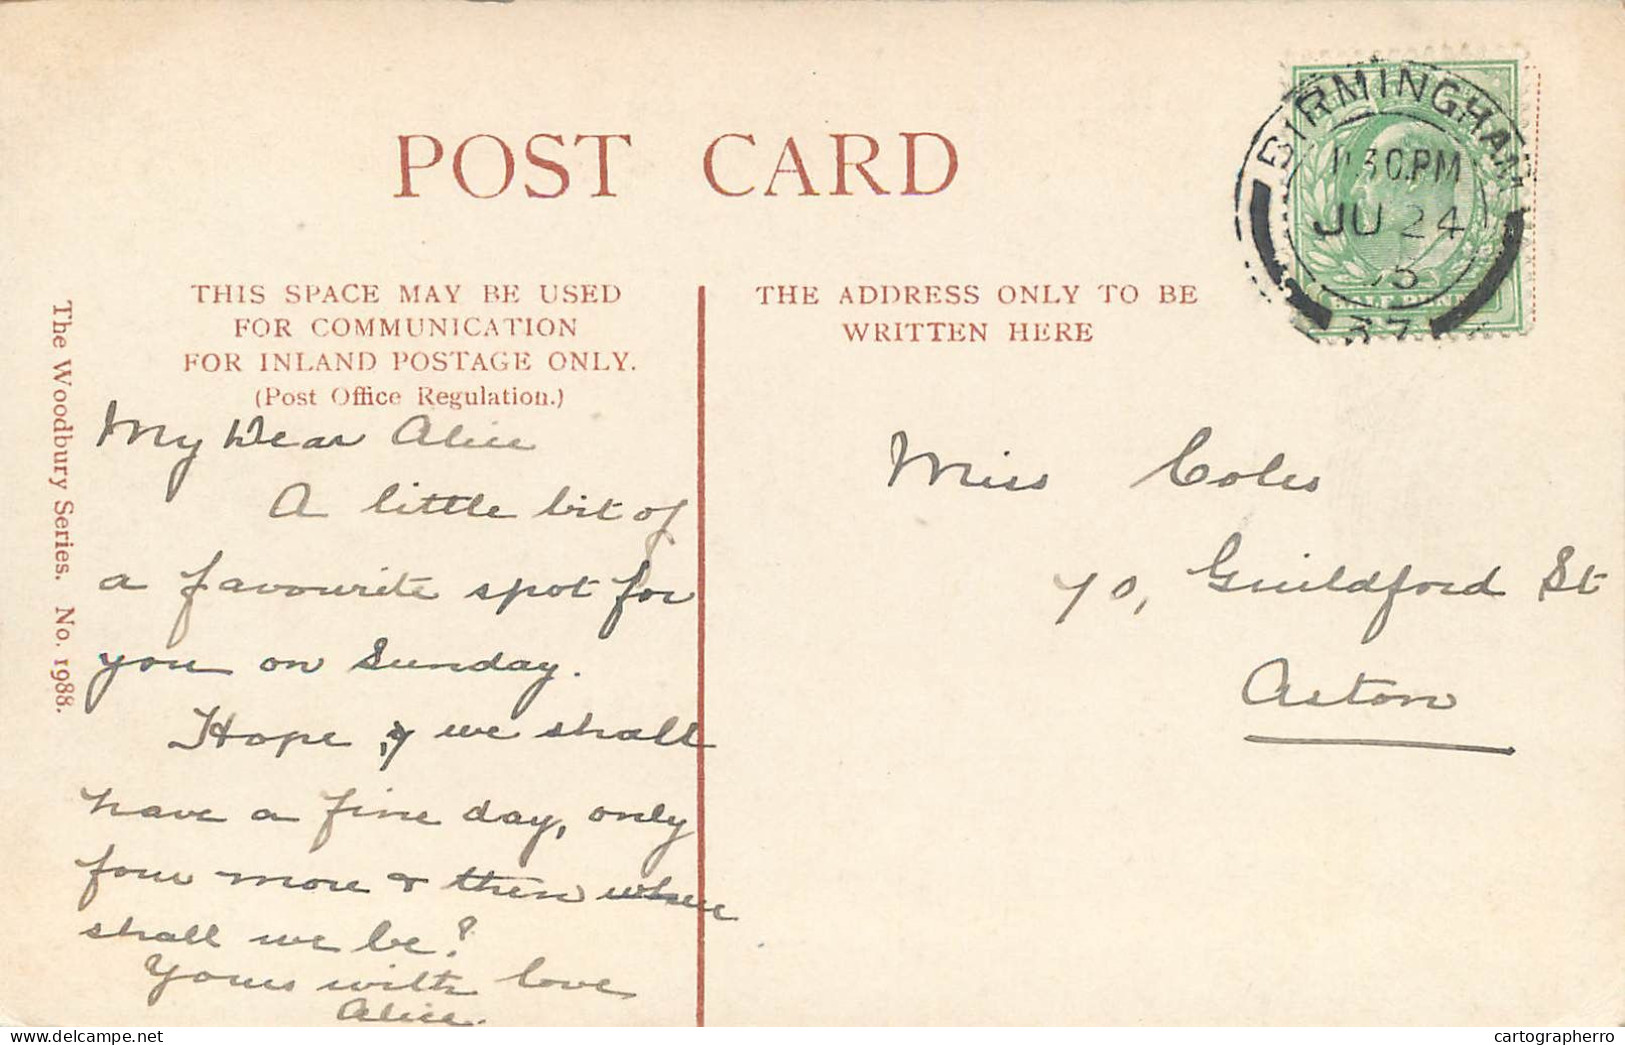 POST CARD
THIS SPACE MAY BE USED
FOR COMMUNICATION
FOR INLAND POSTAGE ONLY.
(Post Office Regulation.)
THE ADDRESS ONLY TO BE
WRITTEN HERE
BIRMINGHAM
JU 24
37
HALF PENNY
The Woodbury Series. No. 1988.
My Dear Alice
A little bit of
a favourite spot for
you on Sunday.
Hope we shall
have a fine day, only
four more & then where
shall we be?
Yours with love
Alice.
Miss Coles
70, Guildford St
Aston
cartographerro